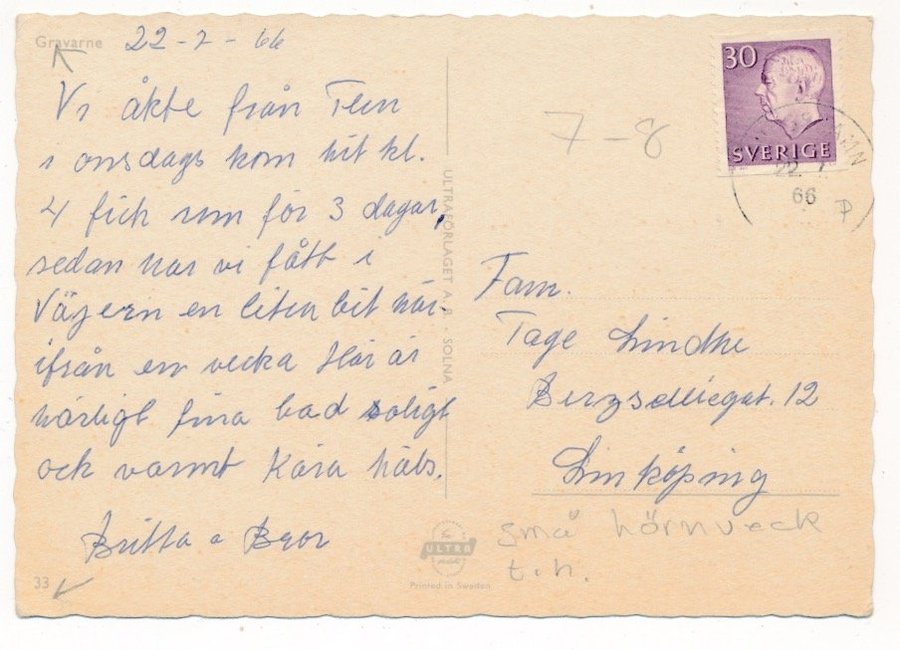 Gravarne
22-7-66
Vi åkte från Flen
i onsdags kom hit kl.
4 fick rum för 3 dagar,
sedan har vi fått i
Väjern en liten bit här-
ifrån en vecka Här är
härligt fina bad soligt
och varmt Kära häls.
Britta o
33
ULTRAFÖRLAGET A.B. - SOLNA
ULTRA
Printed in Sweden
7-8
30
SVERIGE
22 7
66
Fam.
Tage Lindhe
12
Linköping
små hörnveck
t.h.